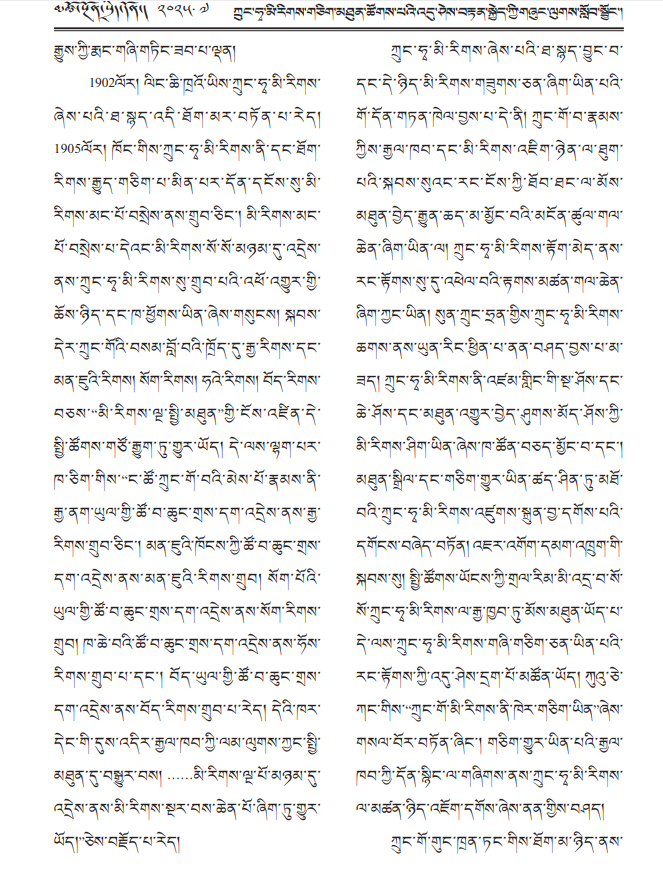 ༢༠༢༥.༧ ཀྲུང་ཧྭ་མི་རིགས་གཅིག་མཐུན་ཚོགས་པའི་འདུ་ཤེས་བརྟན་སྐྱེད་ཀྱི་གཞུང་ལུགས་སློབ་སྦྱོང་།
རྒྱུས་ཀྱི་རྨང་གཞི་གཏིང་ཟབ་པ་ལྡན།
1902ལོར། ལིང་ཆི་ཁྲའོ་ཡིས་ཀྲུང་ཧྭ་མི་རིགས་
ཞེས་པའི་ཐ་སྙད་འདི་ཐོག་མར་བཏོན་པ་རེད།
1905ལོར། ཁོང་གིས་ཀྲུང་ཧྭ་མི་རིགས་ནི་དང་ཐོག་
རིགས་རྒྱུད་གཅིག་པ་མིན་པར་དོན་དངོས་སུ་མི་
རིགས་མང་པོ་བསྲེས་ནས་གྲུབ་ཅིང་། མི་རིགས་མང་
པོ་བསྲེས་པ་དེའང་མི་རིགས་སོ་སོ་མཉམ་དུ་འདྲེས་
ནས་ཀྲུང་ཧྭ་མི་རིགས་སུ་གྲུབ་པའི་འཕོ་འགྱུར་གྱི་
ཆོས་ཉིད་དང་ཁ་ཕྱོགས་ཡིན་ཞེས་གསུངས། སྐབས་
དེར་ཀྲུང་གོའི་བསམ་བློ་བའི་ཁྲོད་དུ་རྒྱ་རིགས་དང་
མན་ཇུའི་རིགས། སོག་རིགས། ཧའེ་རིགས། བོད་རིགས་
བཅས་“མི་རིགས་ལྔ་སྤྱི་མཐུན”གྱི་ངོས་འཛིན་དེ་
སྤྱི་ཚོགས་གཙོ་རྒྱུག་ཏུ་གྱུར་ཡོད། དེ་ལས་ལྷག་པར་
ཁ་ཅིག་གིས་“ང་ཚོ་ཀྲུང་གོ་བའི་མེས་པོ་རྣམས་ནི་
རྒྱ་ནག་ཡུལ་གྱི་ཚོ་བ་ཆུང་གྲས་དག་འདྲེས་ནས་རྒྱ་
རིགས་གྲུབ་ཅིང་། མན་ཇུའི་ཁོངས་ཀྱི་ཚོ་བ་ཆུང་གྲས་
དག་འདྲེས་ནས་མན་ཇུའི་རིགས་གྲུབ། སོག་པོའི་
ཡུལ་གྱི་ཚོ་བ་ཆུང་གྲས་དག་འདྲེས་ནས་སོག་རིགས་
གྲུབ། ཁ་ཆེ་བའི་ཚོ་བ་ཆུང་གྲས་དག་འདྲེས་ནས་ཧོས་
རིགས་གྲུབ་པ་དང་། བོད་ཡུལ་གྱི་ཚོ་བ་ཆུང་གྲས་
དག་འདྲེས་ནས་བོད་རིགས་གྲུབ་པ་རེད། དེའི་ཁར་
དེང་གི་དུས་འདིར་རྒྱལ་ཁབ་ཀྱི་ལམ་ལུགས་ཀྱང་སྤྱི་
མཐུན་དུ་བསྒྱུར་བས། ……མི་རིགས་ལྔ་པོ་མཉམ་དུ་
འདྲེས་ནས་མི་རིགས་སྔར་བས་ཆེན་པོ་ཞིག་ཏུ་གྱུར་
ཡོད།”ཅེས་བརྗོད་པ་རེད།
ཀྲུང་ཧྭ་མི་རིགས་ཞེས་པའི་ཐ་སྙད་བྱུང་བ་
དང་དེ་ཉིད་མི་རིགས་གཟུགས་ཅན་ཞིག་ཡིན་པའི་
གོ་དོན་གཏན་ཁེལ་བྱས་པ་དེ་ནི། ཀྲུང་གོ་བ་རྣམས་
ཀྱིས་རྒྱལ་ཁབ་དང་མི་རིགས་འཇིག་ཉེན་ལ་ཐུག་
པའི་སྐབས་སུའང་རང་ངོས་ཀྱི་ཐོབ་ཐང་ལ་མོས་
མཐུན་བྱེད་རྒྱུན་ཆད་མ་མྱོང་བའི་མངོན་ཚུལ་གལ་
ཆེན་ཞིག་ཡིན་ལ། ཀྲུང་ཧྭ་མི་རིགས་རྟོག་མེད་ནས་
རང་རྟོགས་སུ་དུ་འཕེལ་བའི་རྟགས་མཚན་གལ་ཆེན་
ཞིག་ཀྱང་ཡིན། སུན་ཀྲུང་ཧྲན་གྱིས་ཀྲུང་ཧྭ་མི་རིགས་
ཆགས་ནས་ཡུན་རིང་ཕྱིན་པ་ནན་བཤད་བྱས་པ་མ་
ཟད། ཀྲུང་ཧྭ་མི་རིགས་ནི་འཛམ་གླིང་གི་སྔ་ཤོས་དང་
ཆེ་ཤོས་དང་མཐུན་འགྱུར་བྱེད་ཤུགས་མོད་ཤོས་ཀྱི་
མི་རིགས་ཤིག་ཡིན་ཞེས་ཁ་ཚོན་བཅད་མྱོང་བ་དང་།
མཐུན་སྒྲིལ་དང་གཅིག་གྱུར་ཡིན་ཚད་ཤིན་ཏུ་མཐོ་
བའི་ཀྲུང་ཧྭ་མི་རིགས་འཛུགས་སྐྲུན་བྱ་དགོས་པའི་
དགོངས་བཞེད་བཏོན། འཇར་འགོག་དམག་འཁྲུག་གི་
སྐབས་སུ། སྤྱི་ཚོགས་ཡོངས་ཀྱི་གྲལ་རིམ་མི་འདྲ་བ་སོ་
སོ་ཀྲུང་ཧྭ་མི་རིགས་ལ་རྒྱ་ཁྱབ་ཏུ་མོས་མཐུན་ཡོད་པ་
དེ་ལས་ཀྲུང་ཧྭ་མི་རིགས་གཞི་གཅིག་ཅན་ཡིན་པའི་
རང་རྟོགས་ཀྱི་འདུ་ཤེས་དྲག་པོ་མཚོན་ཡོད། ཀུའུ་ཅེ་
ཀང་གིས་“ཀྲུང་གོ་མི་རིགས་ནི་ཁེར་གཅིག་ཡིན”ཞེས་
གསལ་བོར་བཏོན་ཞིང་། གཅིག་གྱུར་ཡིན་པའི་རྒྱལ་
ཁབ་ཀྱི་དོན་སྙིང་ལ་གཞིགས་ནས་ཀྲུང་ཧྭ་མི་རིགས་
ལ་མཚན་ཉིད་འཇོག་དགོས་ཞེས་ནན་གྱིས་བཤད།
ཀྲུང་གོ་གུང་ཁྲན་ཏང་གིས་ཐོག་མ་ཉིད་ནས་